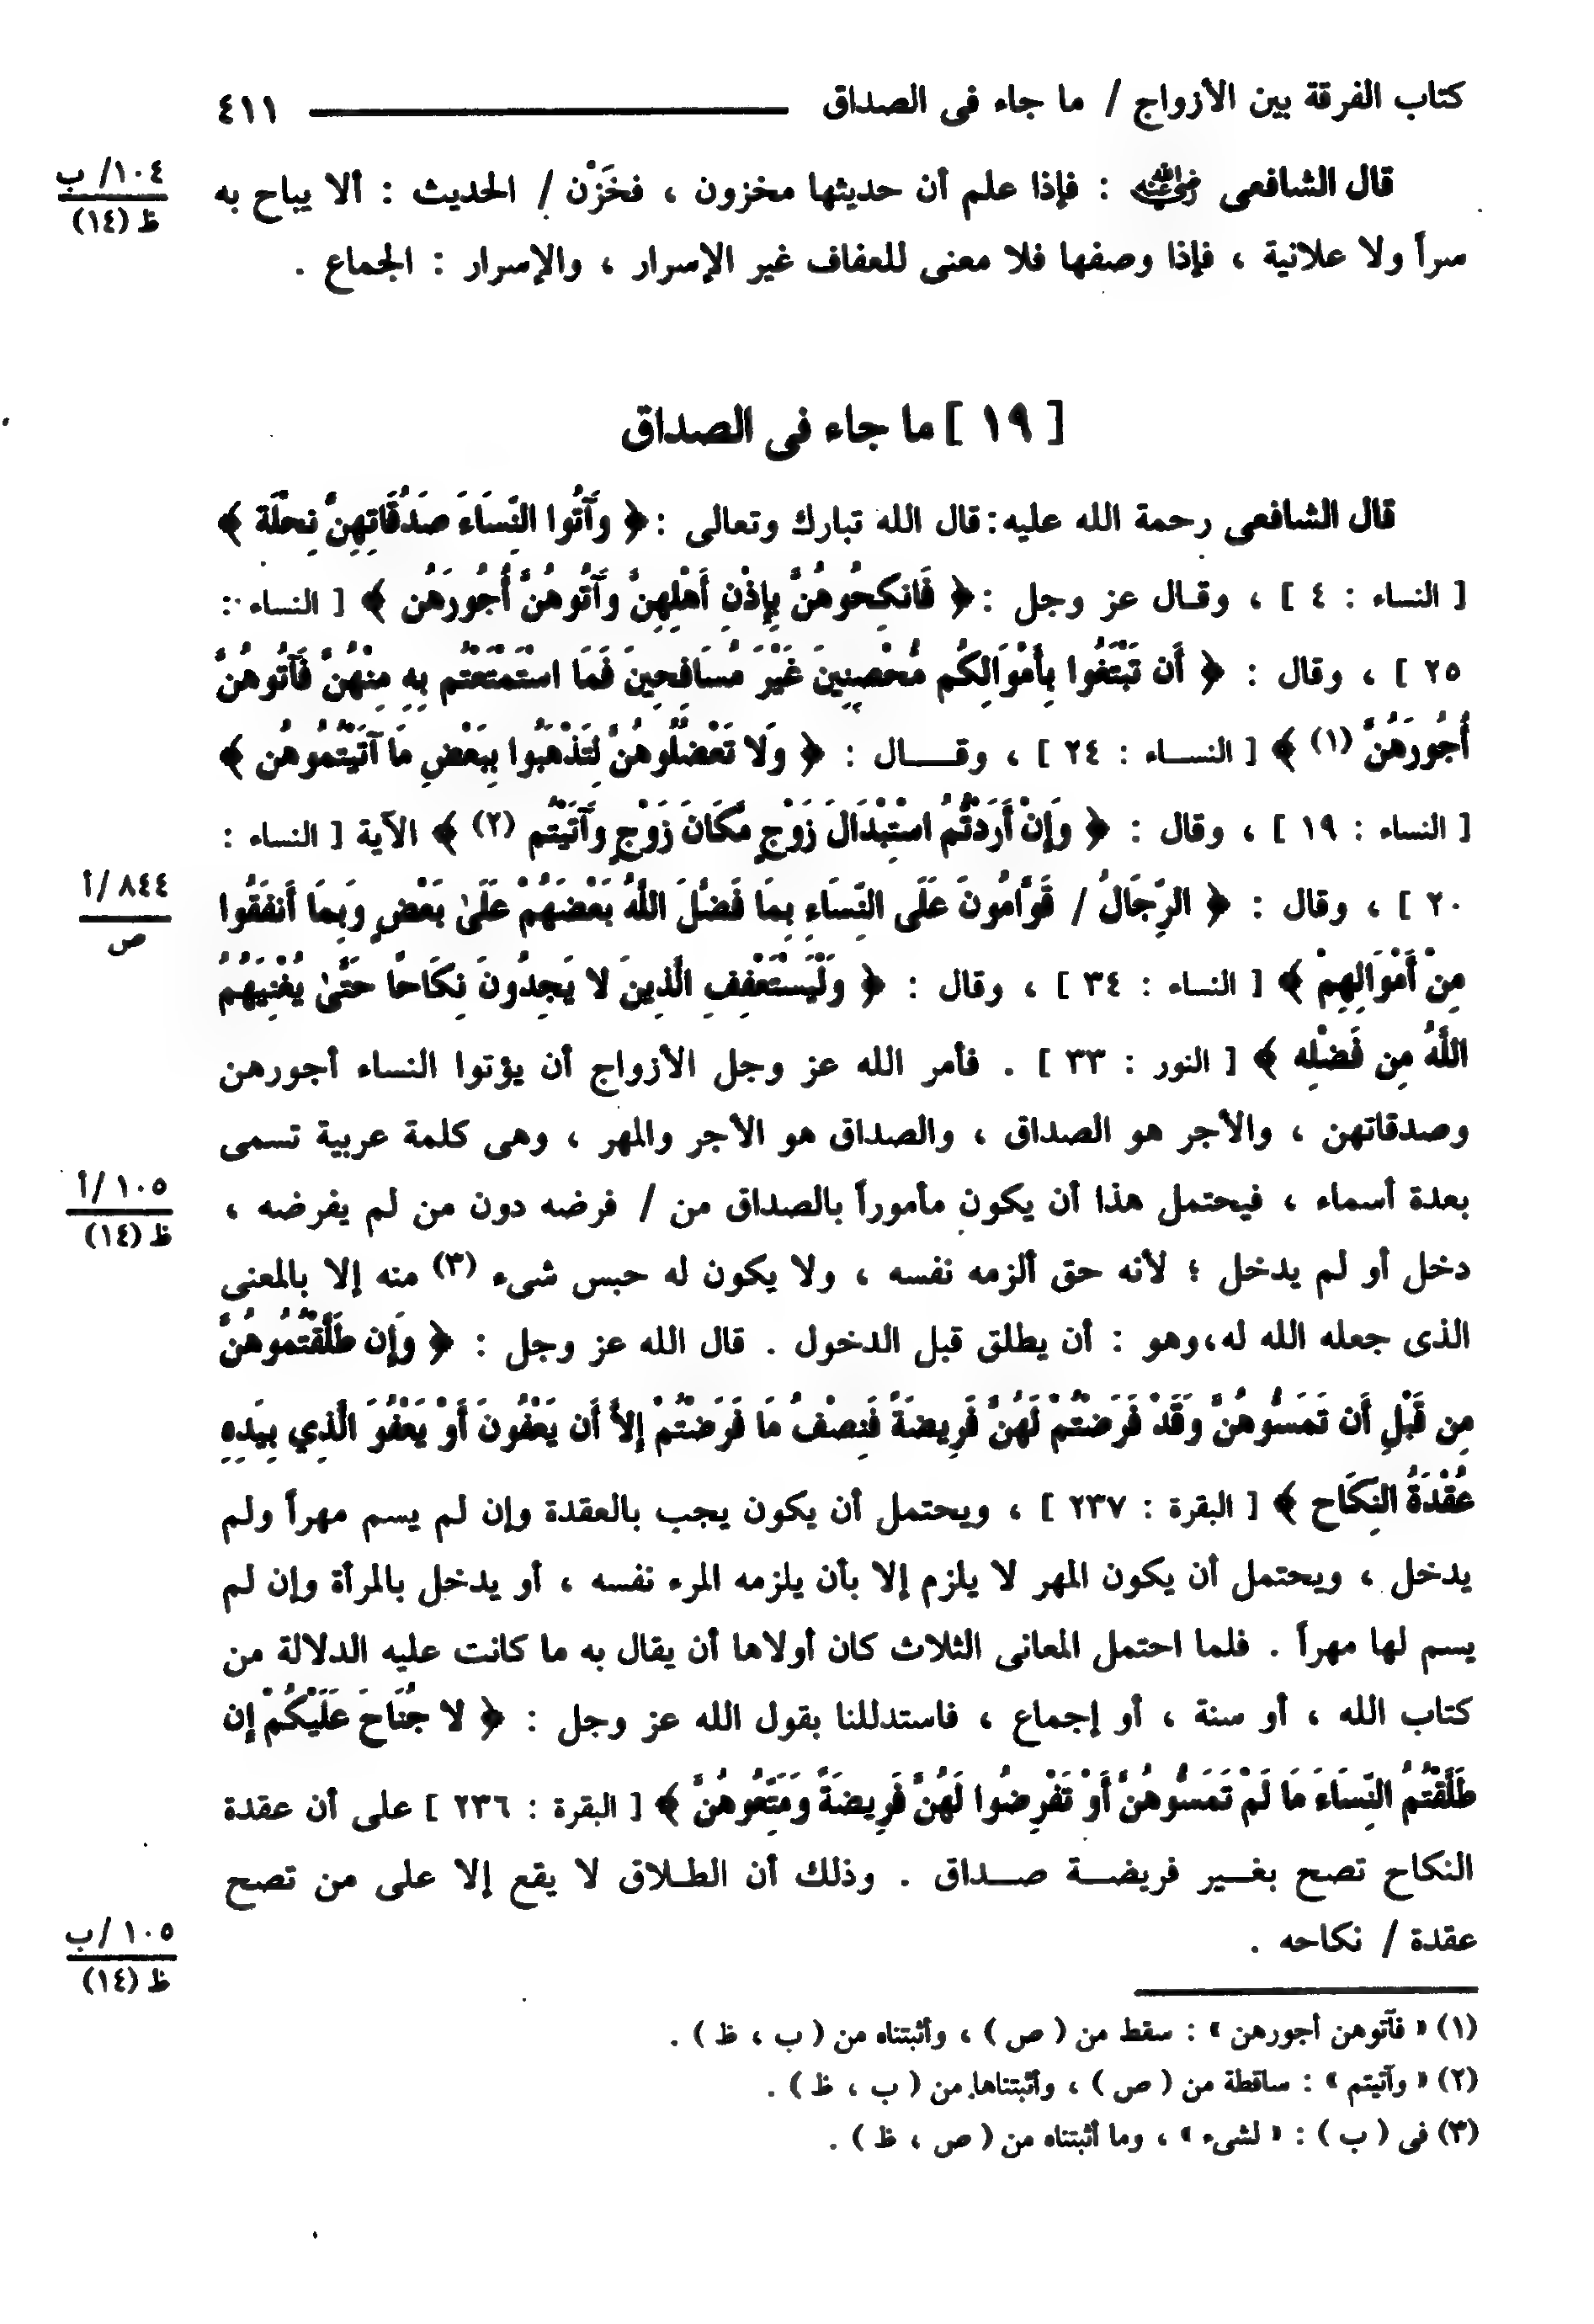 كتاب الفرقة بين الأزواج / ما جاء فى الصداق ٤١١
قال الشافعى رضي الله عنه : فإذا علم أن حديثها مخزون ، فخَزْن / الحديث : ألا يباح به
١٠٤/ ب
ظ (١٤)
سراً ولا علانية ، فإذا وصفها فلا معنى للعفاف غير الإسرار ، والإسرار : الجماع .
[ ١٩ ] ما جاء فى الصداق
قال الشافعى رحمة الله عليه: قال الله تبارك وتعالى :﴿ وَآتُوا النِّسَاءَ صَدُقَاتِهِنَّ نِحْلَة ﴾
[ النساء : ٤ ] ، وقال عز وجل :﴿ فَانكِحُوهُنَّ بِإِذْنِ أَهْلِهِنَّ وَآتُوهُنَّ أُجُورَهُن ﴾ [ النساء :
٢٥ ] ، وقال : ﴿ أَن تَبْتَغُوا بِأَمْوَالِكُم مُّحْصِنِينَ غَيْرَ مُسَافِحِينَ فَمَا اسْتَمْتَعْتُم بِهِ مِنْهُنَّ فَآتُوهُنَّ
أُجُورَهُنَّ (١) ﴾ [ النساء : ٢٤ ] ، وقال : ﴿ وَلا تَعْضُلُوهُنَّ لِتَذْهَبُوا بِبَعْضِ مَا آتَيْتُمُوهُن ﴾
[ النساء : ١٩ ] ، وقال : ﴿ وَإِنْ أَرَدتُّمُ اسْتِبْدَالَ زَوْجٍ مَّكَانَ زَوْجٍ وَآتَيْتُم (٢) ﴾ الآية [ النساء :
٢٠ ] ، وقال : ﴿ الرِّجَالُ / قَوَّامُونَ عَلَى النِّسَاءِ بِمَا فَضَّلَ اللَّهُ بَعْضَهُمْ عَلَىٰ بَعْضٍ وَبِمَا أَنفَقُوا
٨٤٤/ أ
ص
مِنْ أَمْوَالِهِمْ ﴾ [ النساء : ٣٤ ] ، وقال : ﴿ وَلْيَسْتَعْفِفِ الَّذِينَ لا يَجِدُونَ نِكَاحًا حَتَّىٰ يُغْنِيَهُمُ
اللَّهُ مِن فَضْلِه ﴾ [ النور : ٣٣ ] . فأمر الله عز وجل الأزواج أن يؤتوا النساء أجورهن
وصدقاتهن ، والأجر هو الصداق ، والصداق هو الأجر والمهر ، وهى كلمة عربية تسمى
بعدة أسماء ، فيحتمل هذا أن يكون مأموراً بالصداق من / فرضه دون من لم يفرضه ،
١٠٥/ أ
ظ (١٤)
دخل أو لم يدخل ؛ لأنه حق ألزمه نفسه ، ولا يكون له حبس شىء (٣) منه إلا بالمعنى
الذى جعله الله له،وهو : أن يطلق قبل الدخول . قال الله عز وجل : ﴿ وَإِن طَلَّقْتُمُوهُنَّ
مِن قَبْلِ أَن تَمَسُّوهُنَّ وَقَدْ فَرَضْتُمْ لَهُنَّ فَرِيضَةً فَنِصْفُ مَا فَرَضْتُمْ إِلاَّ أَن يَعْفُونَ أَوْ يَعْفُوَ الَّذِي بِيَدِهِ
عُقْدَةُ النِكَاح ﴾ [ البقرة : ٢٣٧ ] ، ويحتمل أن يكون يجب بالعقدة وإن لم يسم مهراً ولم
يدخل ، ويحتمل أن يكون المهر لا يلزم إلا بأن يلزمه المرء نفسه ، أو يدخل بالمرأة وإن لم
يسم لها مهراً . فلما احتمل المعانى الثلاث كان أولاها أن يقال به ما كانت عليه الدلالة من
كتاب الله ، أو سنة ، أو إجماع ، فاستدللنا بقول الله عز وجل : ﴿ لا جُنَاحَ عَلَيْكُمْ إِن
طَلَّقْتُمُ النِّسَاءَ مَا لَمْ تَمَسُّوهُنَّ أَوْ تَفْرِضُوا لَهُنَّ فَرِيضَةً وَمَتِّعُوهُنَّ ﴾ [ البقرة : ٢٣٦ ] على أن عقدة
النكاح تصح بغير فريضة صداق . وذلك أن الطلاق لا يقع إلا على من تصح
عقدة / نكاحه .
١٠٥/ ب
ظ (١٤)
(١) « فآتوهن أجورهن » : سقط من ( ص ) ، وأثبتناه من ( ب ، ظ ) .
(٢) « وآتيتم » : ساقطة من ( ص ) ، وأثبتناها من ( ب ، ظ ) .
(٣) فى ( ب ) : « لشىء » ، وما أثبتناه من ( ص ، ظ ) .